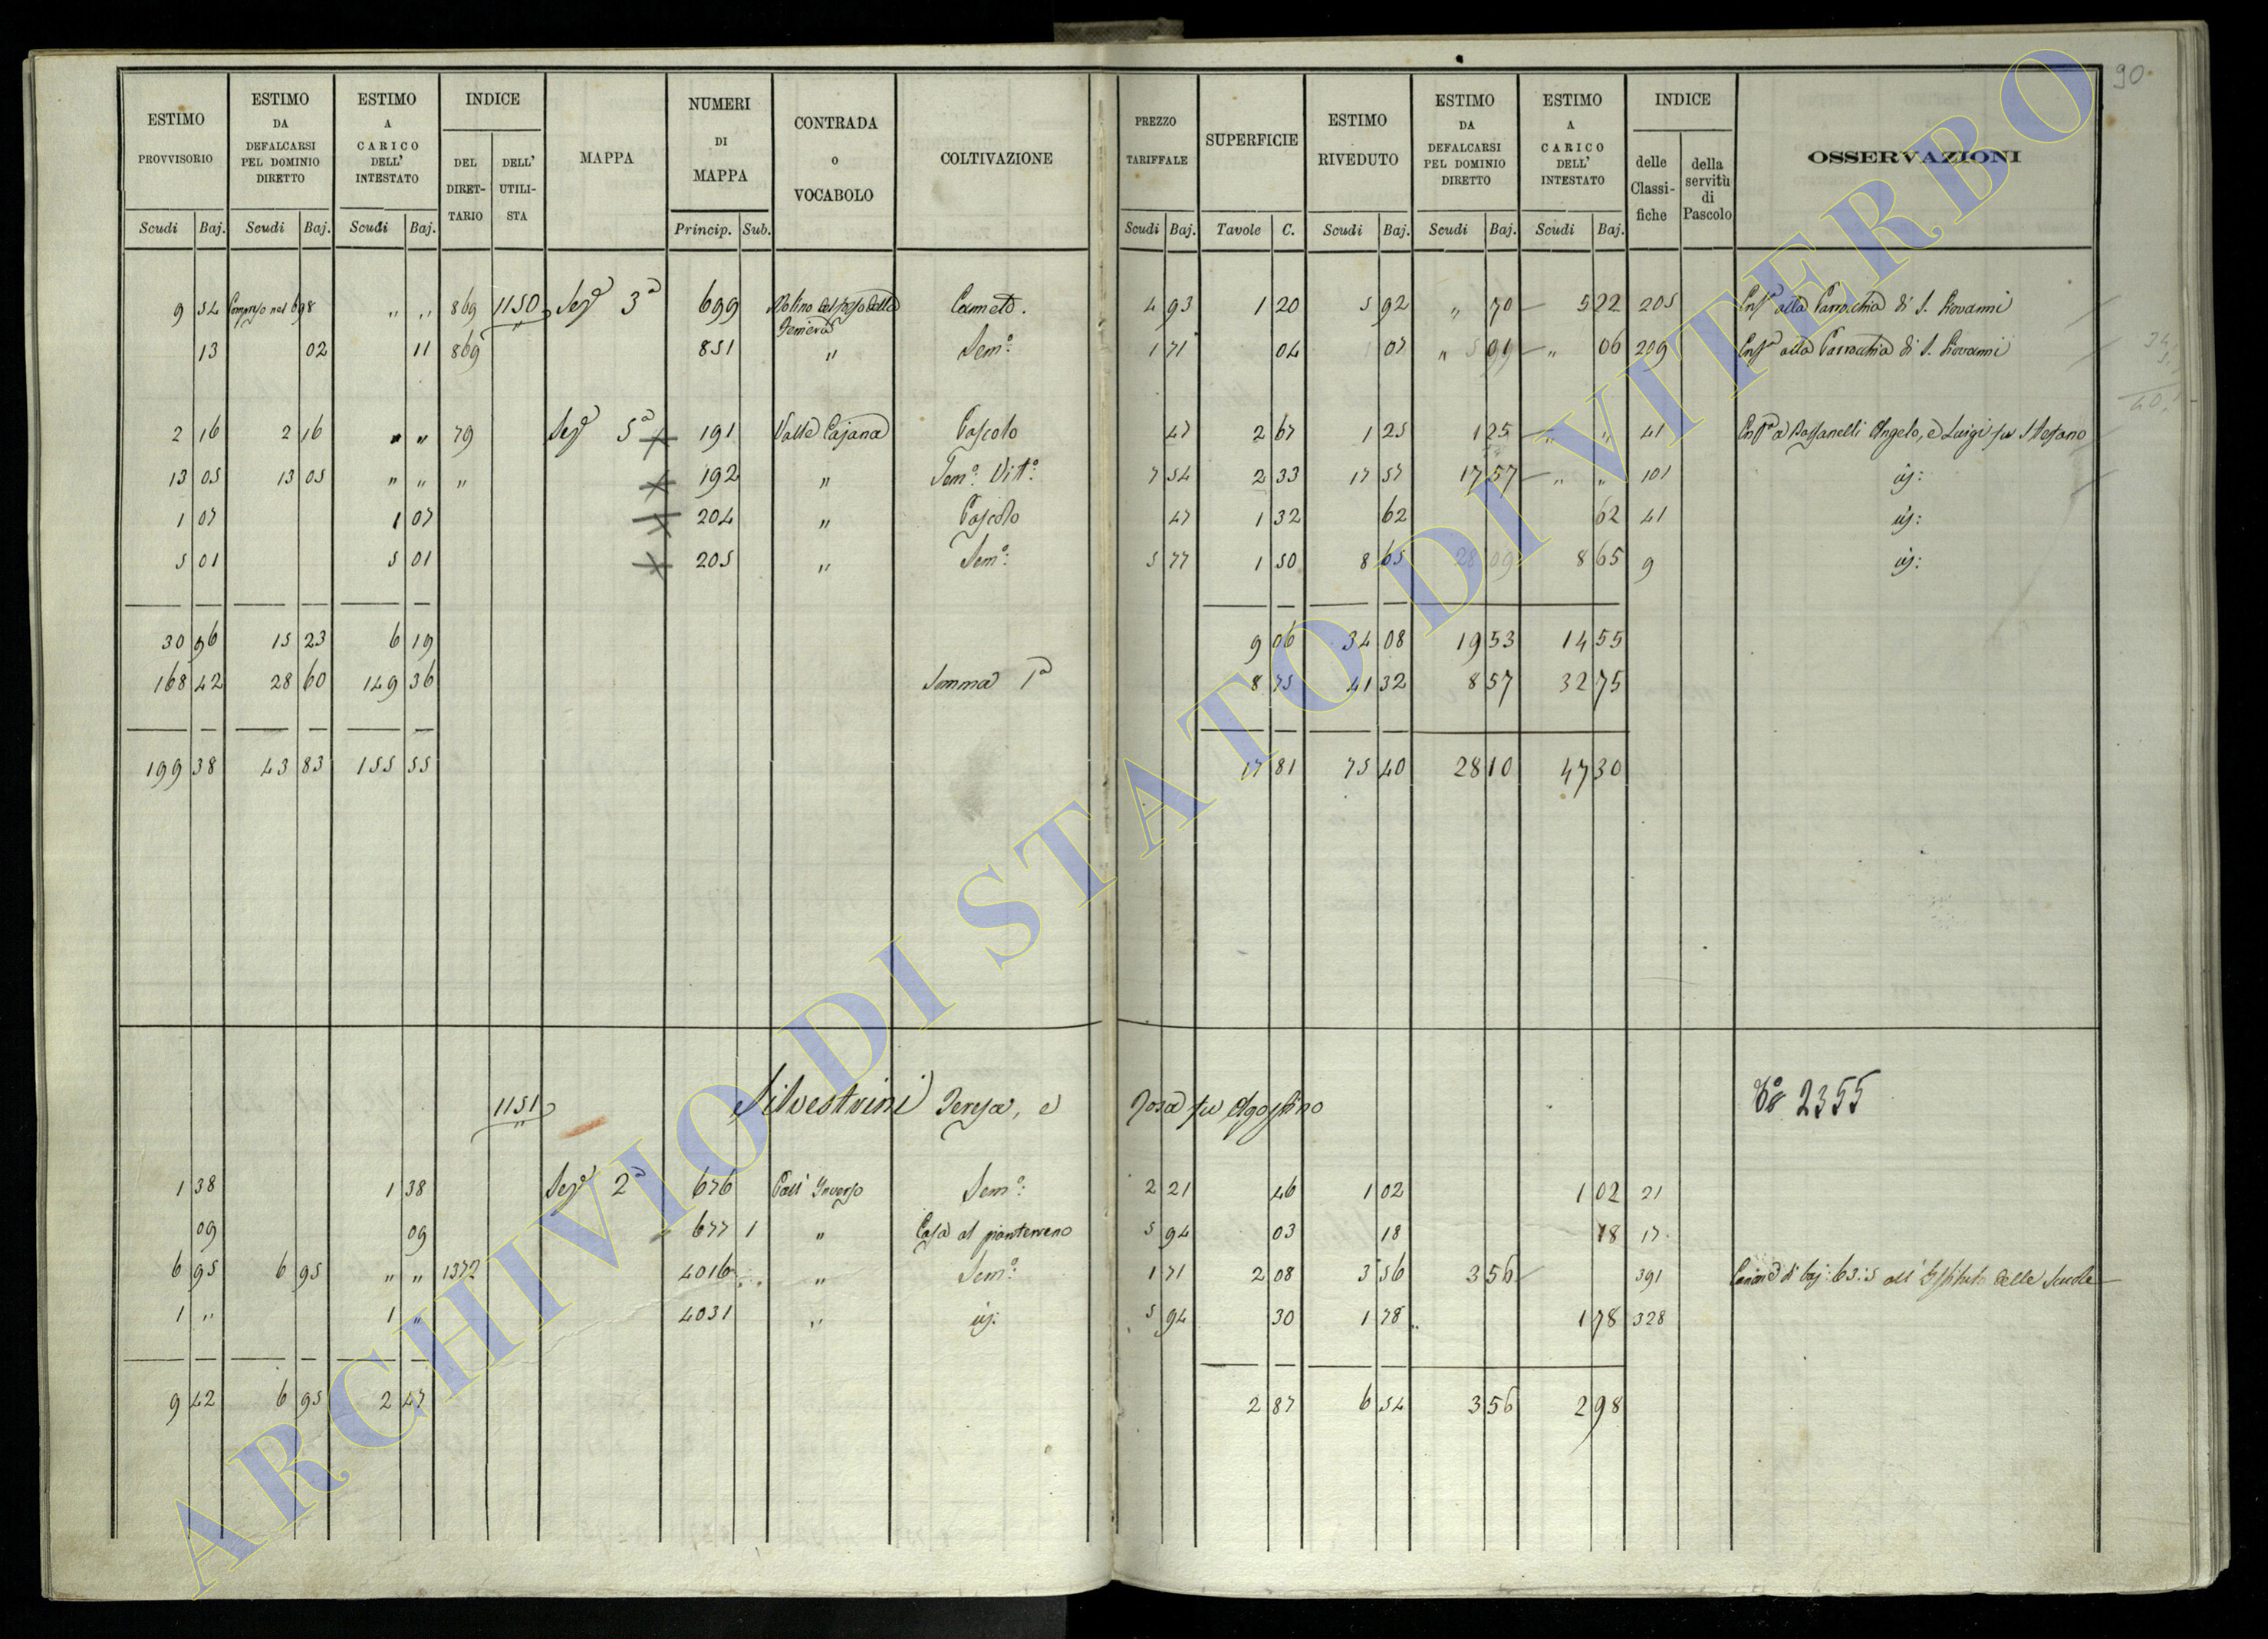 90.
ESTIMO PROVVISORIO | ESTIMO DA DEFALCARSI PEL DOMINIO DIRETTO | ESTIMO A CARICO DELL' INTESTATO | INDICE | MAPPA | NUMERI DI MAPPA | CONTRADA O VOCABOLO | COLTIVAZIONE | PREZZO TARIFFALE | SUPERFICIE | ESTIMO RIVEDUTO | ESTIMO DA DEFALCARSI PEL DOMINIO DIRETTO | ESTIMO A CARICO DELL' INTESTATO | INDICE | OSSERVAZIONI
DEL DIRET-TARIO | DELL' UTILI-STA | delle Classi-fiche | della servitù di Pascolo
Scudi | Baj. | Scudi | Baj. | Scudi | Baj. | Princip. | Sub. | Scudi | Baj. | Tavole | C. | Scudi | Baj. | Scudi | Baj. | Scudi | Baj.
9 54 Compreso nel 698 " " 869 1150 Sezª 3ª 699 Molino del Canneto. 4 93 1 20 5 92 " 70 — 5 22 205 Enfª alla Parrocchia di S. Giovanni
13 02 11 869 851 " Semº: 1 71 04 07 " 01 — " 06 209 Enfª alla Parrocchia di S. Giovanni
2 16 2 16 " " 79 Sezª 5ª 191 Valle Cajana Pascolo 47 2 67 1 25 1 25 — " " 41 Enfª a Bassanelli Angelo, e Luigi fu Stefano
13 05 13 05 " " " 192 " Semº: Vitº: 7 54 2 33 17 57 17 57 — " " 101 id:
1 07 1 07 204 " Pascolo 47 1 32 62 62 41 id:
5 01 5 01 205 " Semº: 5 77 1 50 8 65 28 09 8 65 9 id:
30 96 15 23 6 19 9 06 34 08 19 53 14 55
168 42 28 60 149 36 Somma Iª 8 75 41 32 8 57 32 75
199 38 43 83 155 55 17 81 75 40 28 10 47 30
1151 Silvestrini Teresa, e Rosa fu Agostino 2355
1 38 1 38 Sezª 2ª 676 Inverso Semº: 2 21 46 1 02 1 02 21
09 09 677 1 " Casa al pianterreno 5 94 03 18 18 17
6 95 6 95 " " 1372 4016 " Semº: 1 71 2 08 3 56 3 56 — 391 Canone di baj: 63:5 all' Istituto delle Scuole
1 " 1 " 4031 " id: 5 94 30 1 78 1 78 328
9 42 6 95 2 47 2 87 6 54 3 56 2 98
ARCHIVIO DI STATO DI VITERBO